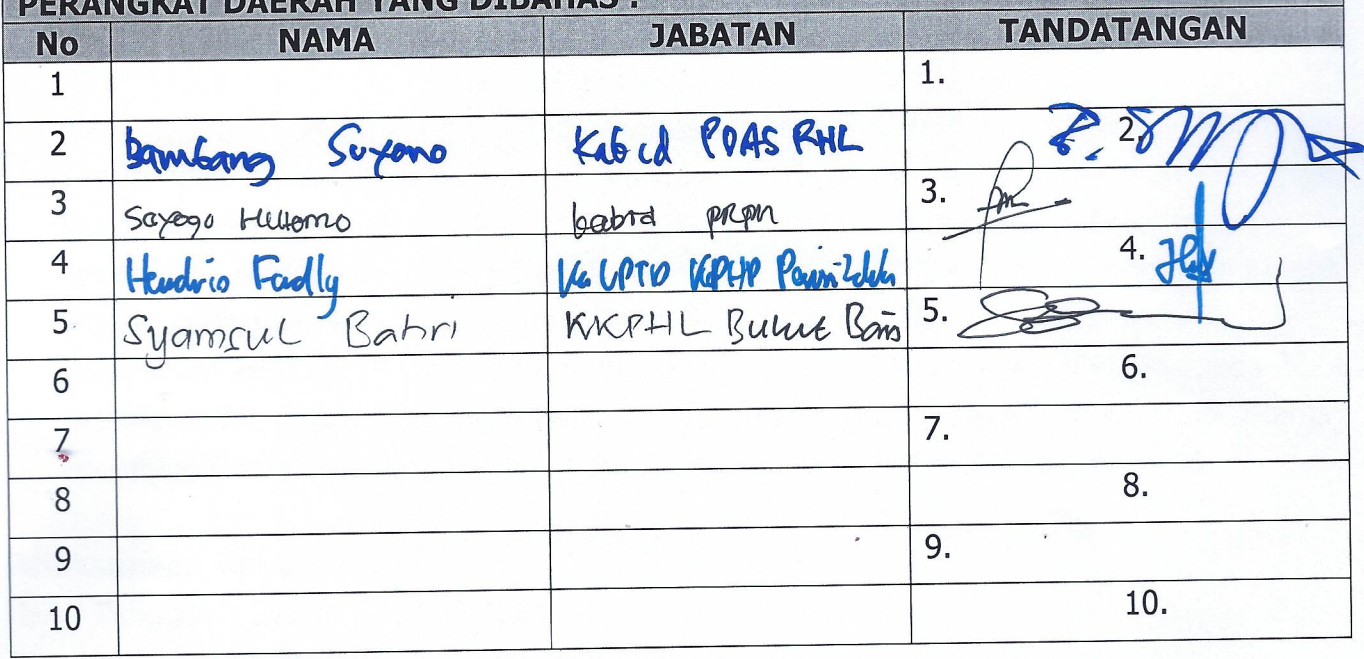 PERANGKAT DAERAH YANG DIBAHAS :
No NAMA JABATAN TANDATANGAN
1 1.
2 Bambang Suyono Kabid PDAS RHL 2.
3 Sayogo Hutomo kabid PRPM 3.
4 Hendrio Fadly Ka UPTD KPHP 4.
5 Syamsul Bahri KKPHL 5.
6 6.
7 7.
8 8.
9 9.
10 10.